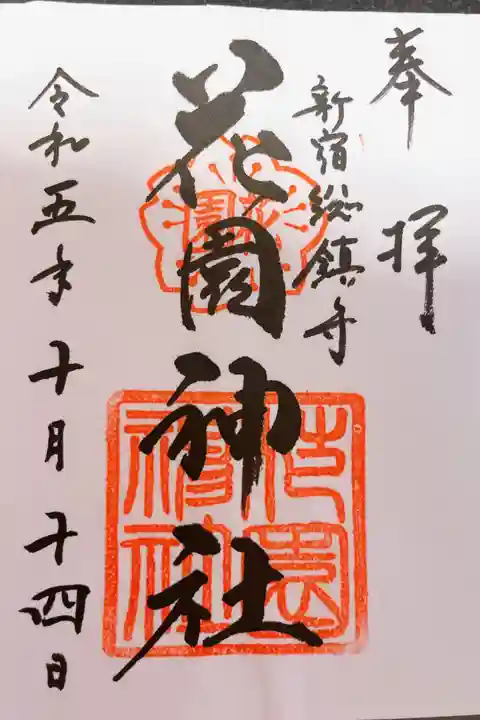 奉拝
新宿総鎮守
花園神社
令和五年十月十四日
花園
花園神社